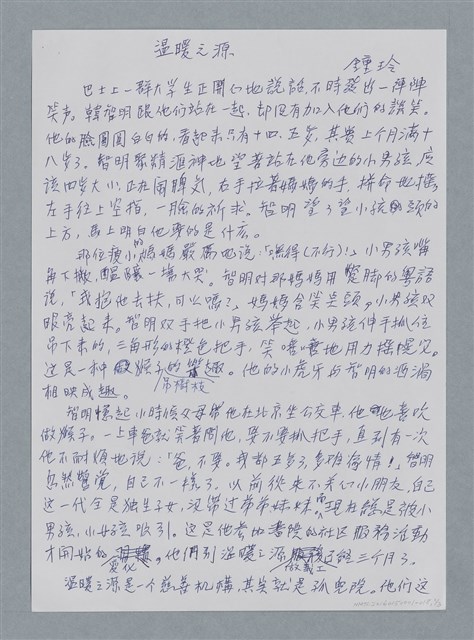 溫暖之源
鍾玲
巴士上一群大学生正開心地說話,不時發出一陣陣
笑声。韓智明跟他們站在一起,却沒有加入他們的說笑。
他的臉圓圓白白的,看起來只有十四、五岁,其實上个月滿十
八岁了。智明聚精滙神地望著站在他旁边的小男孩,应
該四岁大小,正在鬧脾気,右手拉著媽媽的手,拼命地搖,
左手往上空指,一臉的祈求。智明望了望小孩頭的
上方,馬上明白他要的是什麼。
那位瘦小的媽媽嚴厲地说:「唔得(不行)!」小男孩嘴
角下撇,醞釀一場大哭。智明对那媽媽用蹩脚的粵語
说,「我抱他去扶,可以嗎?」媽媽含笑点頭。小男孩双
眼亮起來。智明双手把小男孩举起,小男孩伸手抓住
吊下來的,三角形的橙色把手,笑嘻嘻地用力搖晃它。
這是一种猴子的
吊樹枝
樂趣。他的小虎牙与智明的酒渦
相映成趣。
智明憶起小時候父母带他在北京坐公交車,他也喜欢
做猴子。一上車爸就笑著問他,要不要抓把手,直到有一次
他不耐煩地说:「爸,不要。我都五岁了,多难為情!」智明
忽然驚覚,自己不一樣了。以前從來不关心小朋友,自己
这一代全是独生子女,沒带过弟弟妹妹,而現在總是被小
男孩,小女孩吸引。这是他参加書院的社区服務活動
才開始的
變化
。他們到溫暖之源
做義工
了三个月了。
溫暖之源是一个慈善机構,其实就是孤児院。他們这